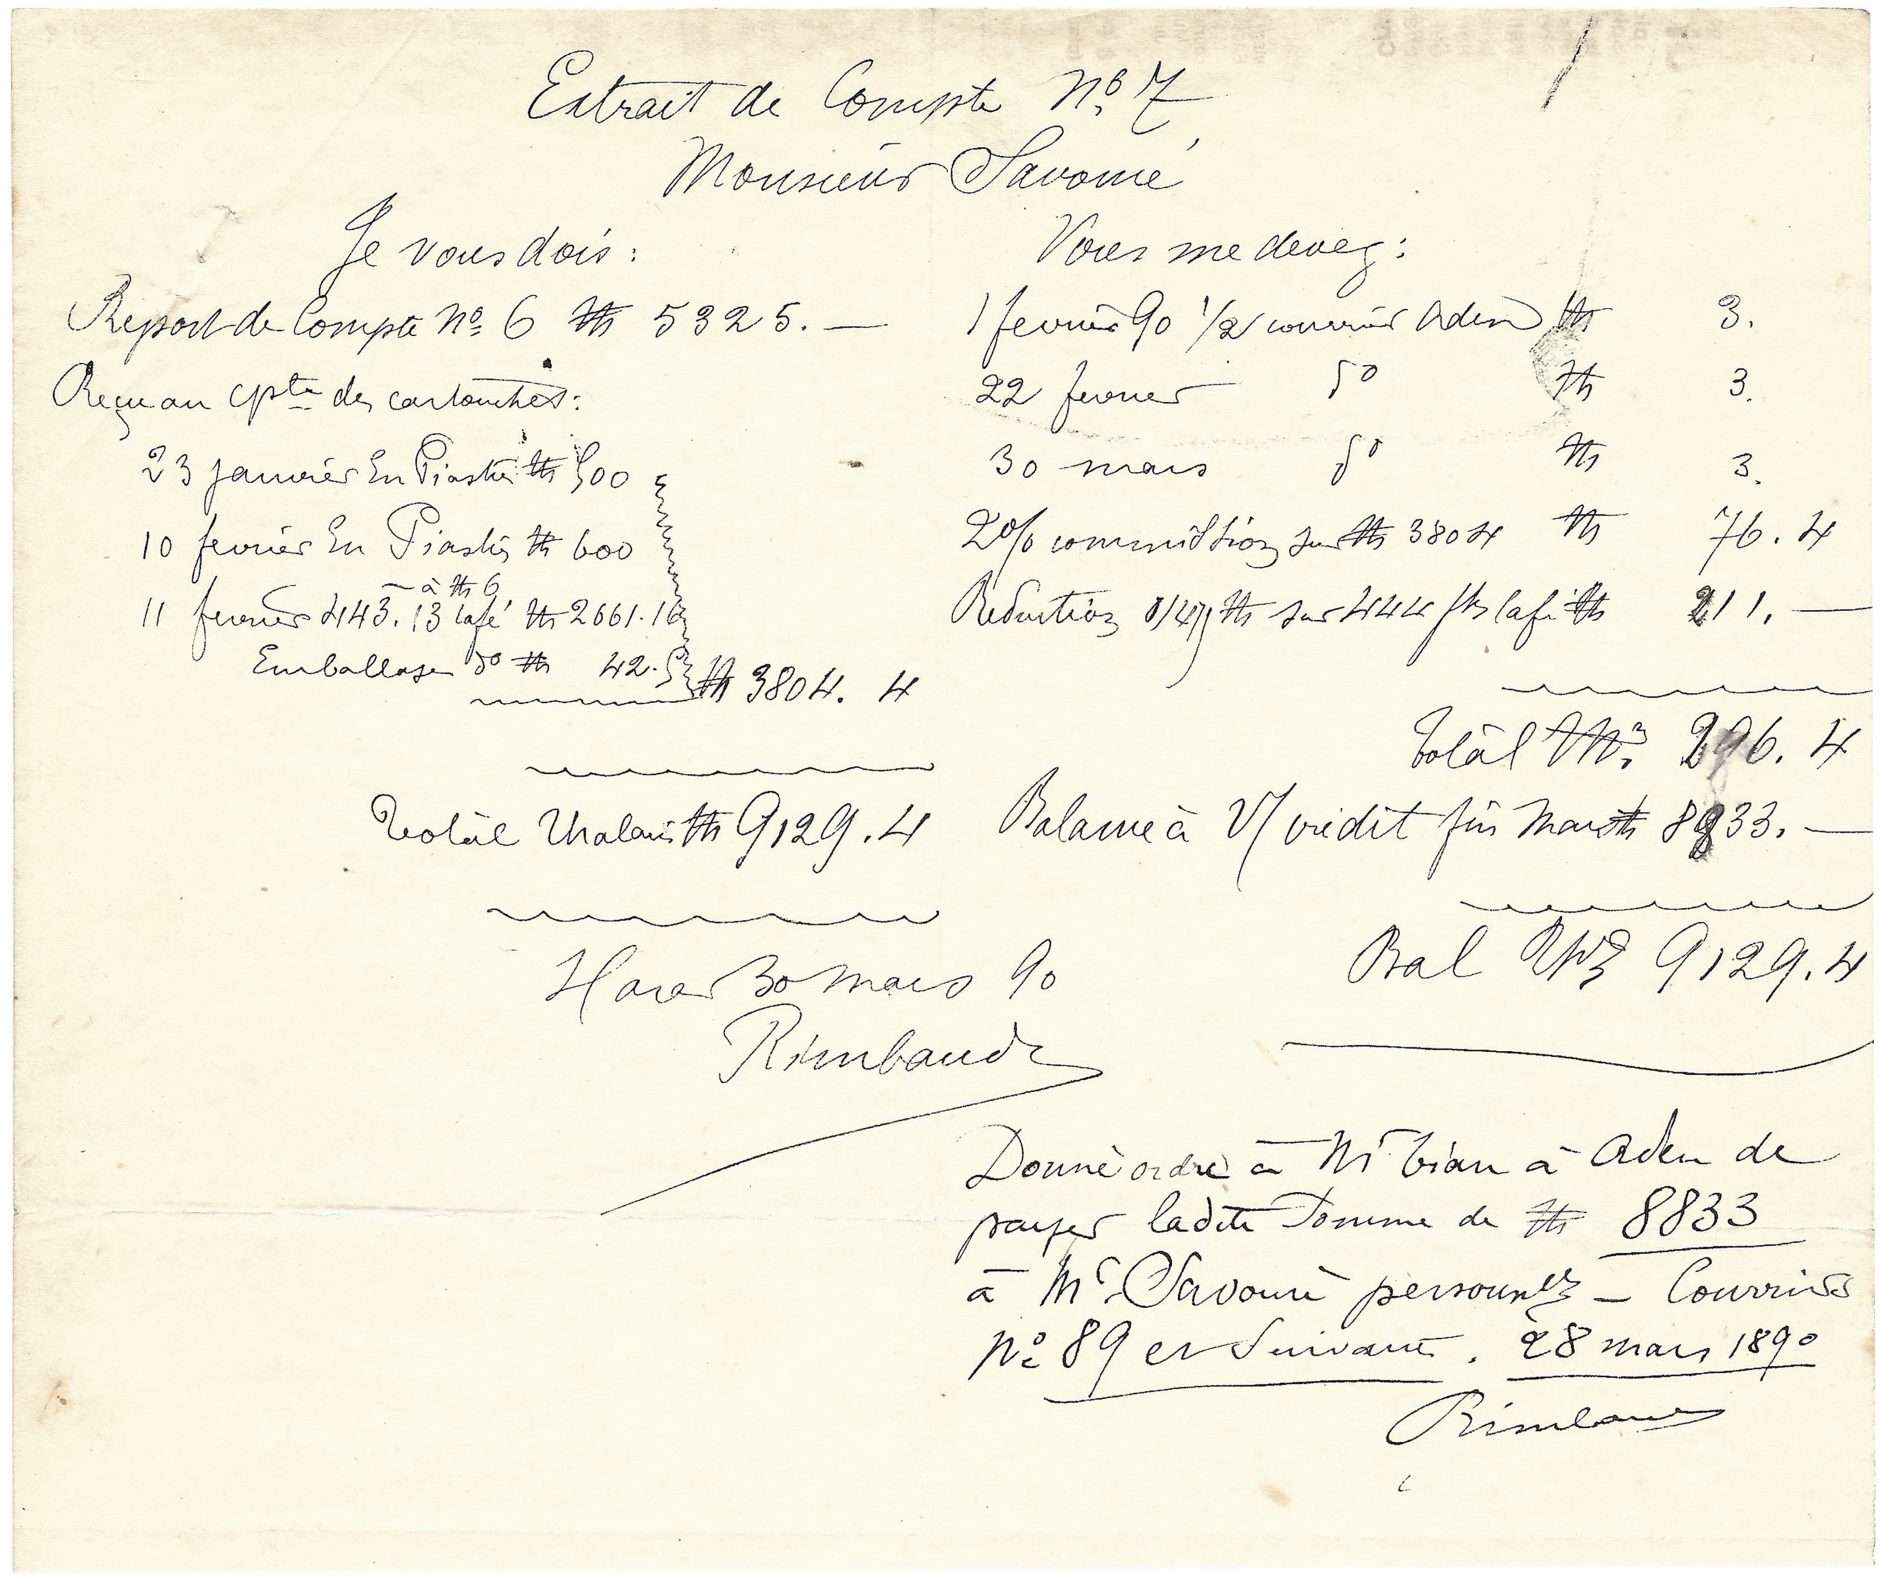 Extrait de Compte No. 7
Monsieur Savouré
Je vous dois :
Report de Compte No. 6 Th 5325. —
Reçu au cpte des cartouches :
23 janvier En Piastres Th 500
10 fevrier En Piastres Th 600
à Th 6
11 fevrier 443.13 café Th 2661.16
Emballage do Th 42.5 Th 3804. 4
Total Thalaris Th 9129.4
Harar 30 mars 90
Rimbaud
Vous me devez :
1 fevrier 90 1/2 courrier Aden Th 3.
22 fevrier do Th 3.
30 mars do Th 3.
2% commission sur Th 3804 Th 76.4
Reduction Th sur 444 café Th 211. —
Total Th. 296.4
Balance à V/ crédit fin mars Th 8833. —
Bal Ths 9129.4
Donné ordre à Mr Tian à Aden de
payer ladite somme de Th 8833
à Mr. Savouré — Courriers
No. 89 et suivants. 28 mars 1890
Rimbaud